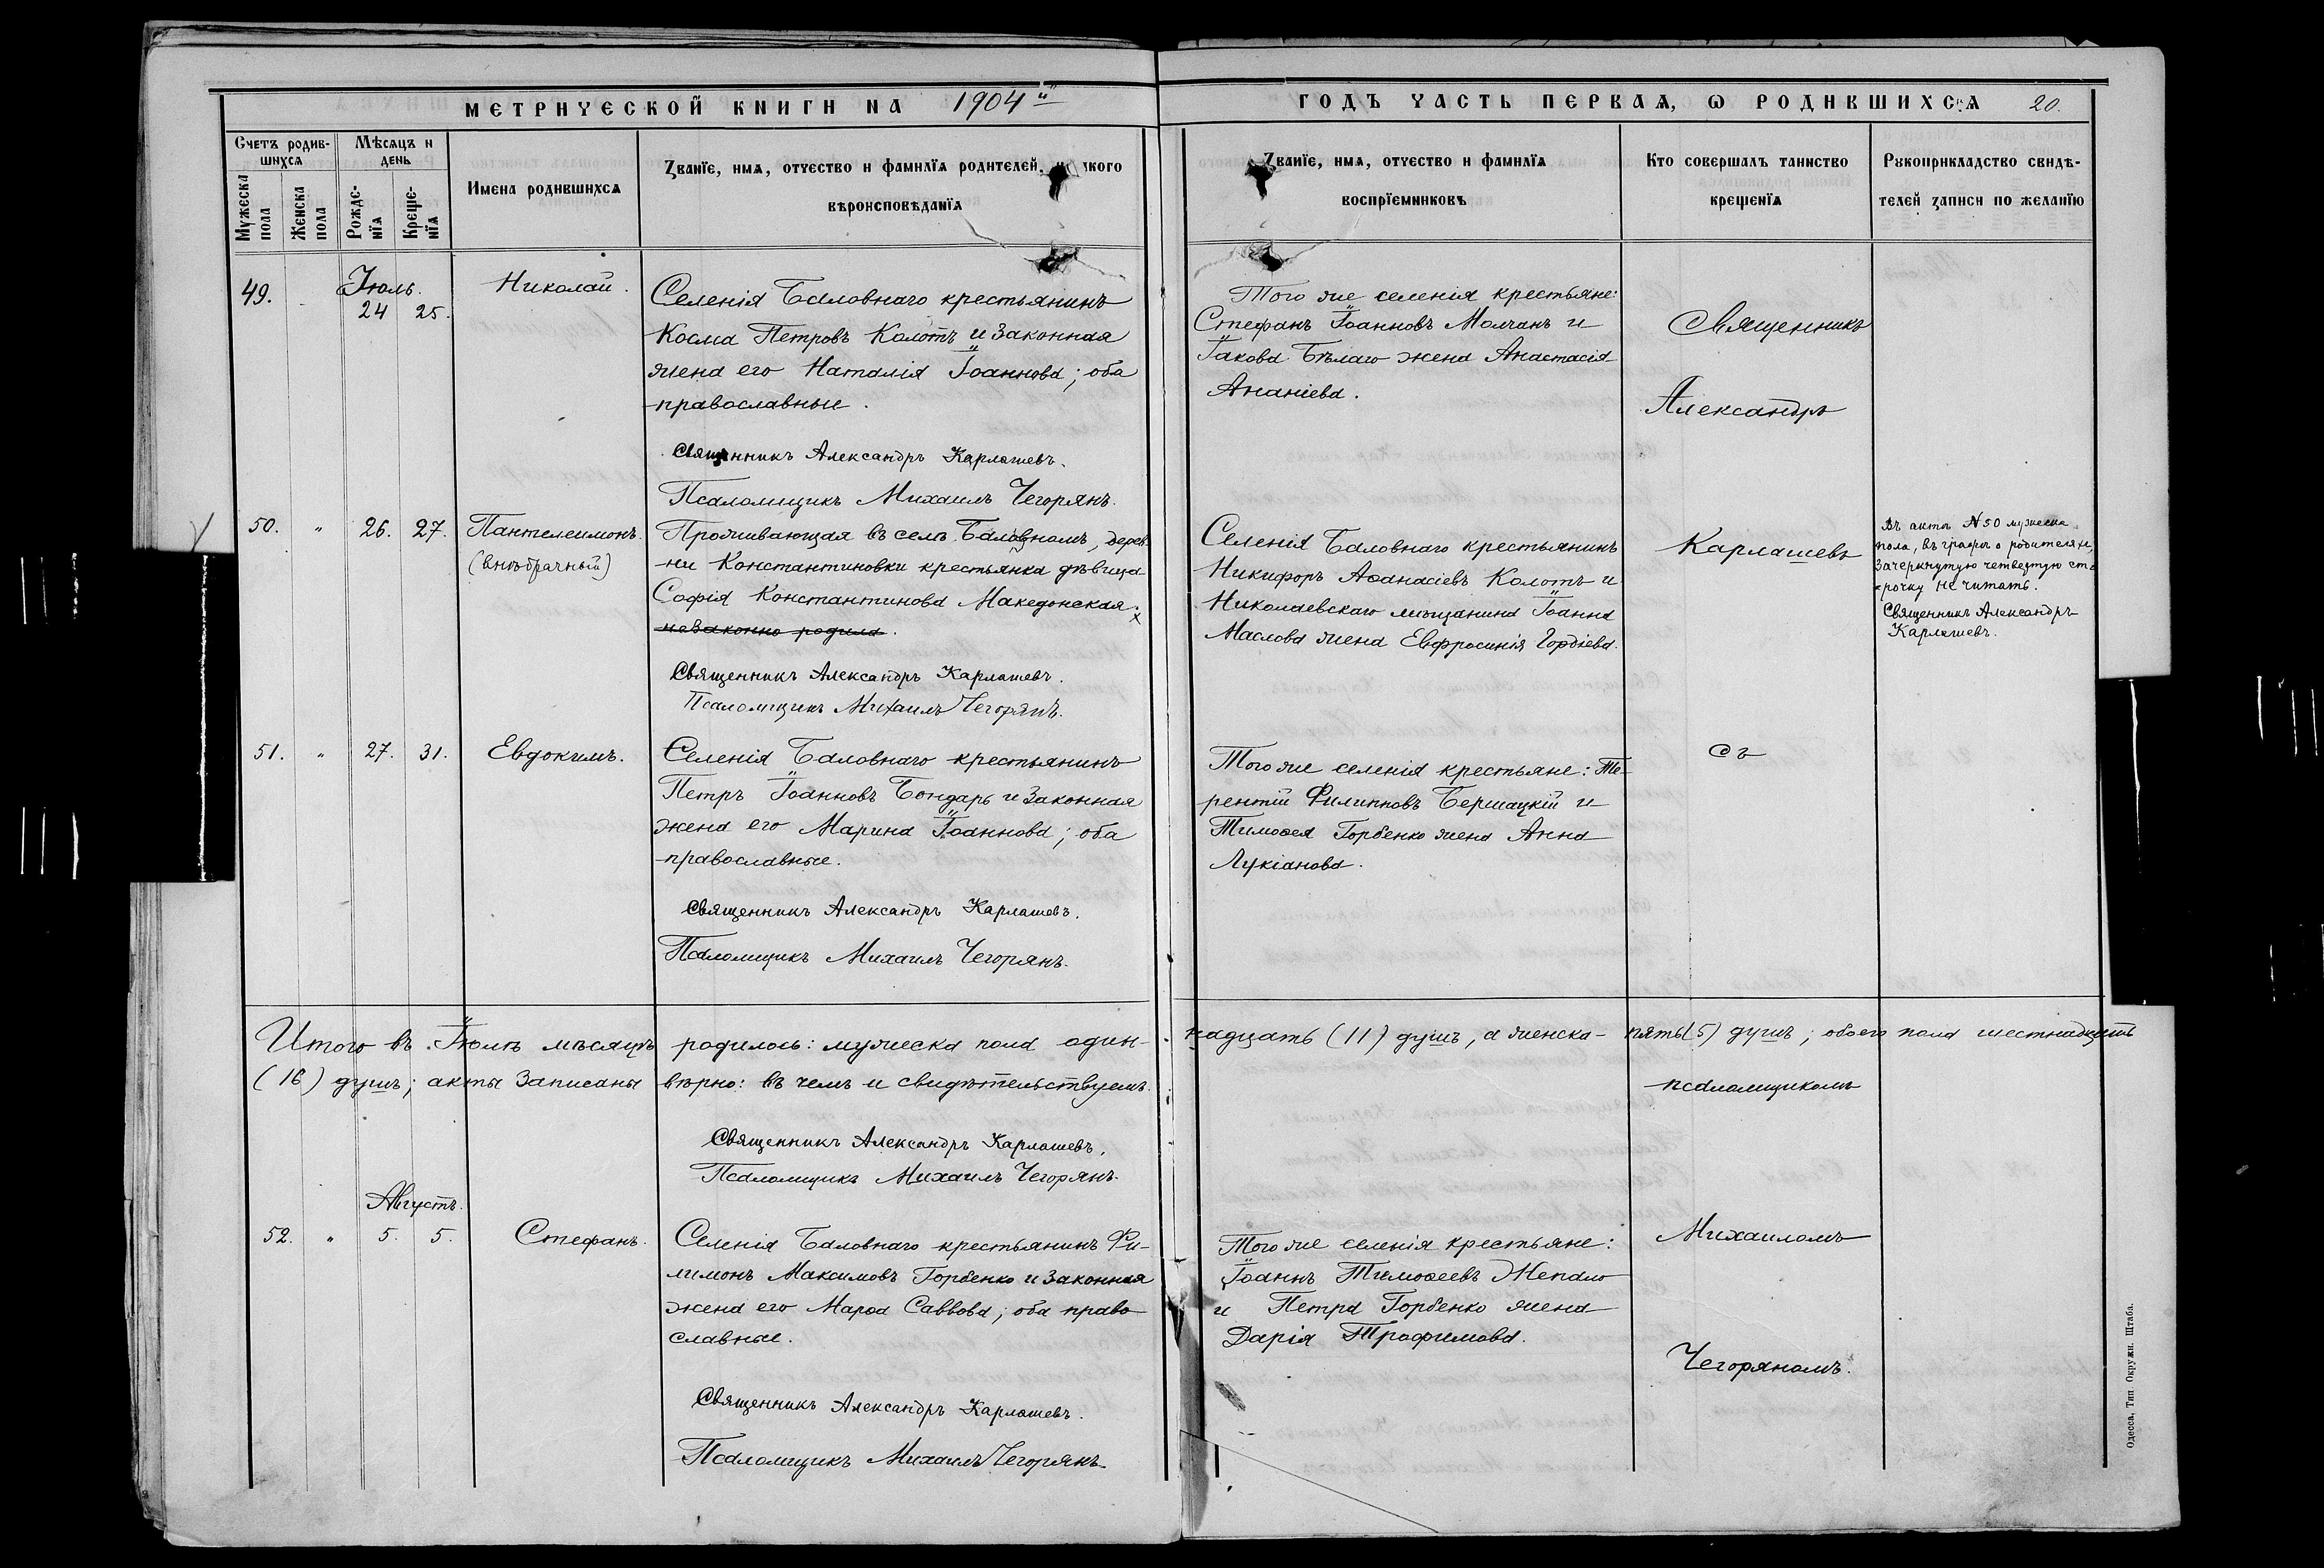 МЕТРИЧЕСКОЙ КНИГИ НА 1904й
ГОДЪ ЧАСТЬ ПЕРВАѦ, Ѡ РОДИВШИХСѦ 20.
Счетъ родив-
шихсѧ
Мѣсѧцъ и
день
Мужеска
пола
Женска
пола
Рожде-
нїѧ
Креще-
нїѧ
Имена родившихсѧ
Званїе, имѧ, отчество и фамилїѧ родителей,
вѣроисповѣданїѧ
Званїе, имѧ, отчество и фамилїѧ
воспрїемниковъ
Кто совершалъ таинство
крещенїѧ
Рукоприкладство свидѣ-
телей записи по желанїю
Іюль.
49. 24 25. Николай.
Селенія Баловнаго крестьянинъ
Косма Петровъ Колотъ и законная
жена его Наталія Іоаннова; оба
православные.
Священникъ Александръ Карлашевъ.
Псаломщикъ Михаилъ Чегорянъ.
Того же селенія крестьяне:
Стефанъ Іоанновъ Молчанъ и
Іакова Бѣлаго жена Анастасія
Ананіева.
Священникъ
Александръ
50. " 26. 27. Пантелеимонъ.
(внѣбрачный)
Проживающая въ селѣ Баловномъ, дерев-
ни Константиновки крестьянка дѣвица
Софія Константинова Македонская.
незаконно родила.
Священникъ Александръ Карлашевъ.
Псаломщикъ Михаилъ Чегорянъ.
Селенія Баловнаго крестьянинъ
Никифоръ Аѳанасіевъ Колотъ и
Николаевскаго мѣщанина Іоанна
Маслова жена Евфросинія Гордіева.
Карлашевъ
Въ актѣ №50 мужеска
пола, въ графѣ о родителяхъ,
зачеркнутую четвертую ст
рочку не читать.
Священникъ Александръ
Карлашевъ.
51. " 27. 31. Евдокимъ.
Селенія Баловнаго крестьянинъ
Петръ Іоанновъ Бондарь и законная
жена его Марина Іоаннова; оба
православные.
Священникъ Александръ Карлашевъ.
Псаломщикъ Михаилъ Чегорянъ.
Того же селенія крестьяне: Те-
рентій Филипповъ Бершацкій и
Тимоѳея Горбенко жена Анна
Лукіанова.
съ
Итого въ Іюлѣ мѣсяцѣ родилось: мужеска пола один-
надцать (11) душъ, а женска - пять (5) душъ; обоего пола шестнадцать
(16) душъ; акты записаны вѣрно: въ чемъ и свидѣтельствуемъ.
псаломщикомъ
Священникъ Александръ Карлашевъ.
Псаломщикъ Михаилъ Чегорянъ.
Августъ.
52. " 5. 5. Стефанъ.
Селенія Баловнаго крестьянинъ Фи-
лимонъ Максимовъ Горбенко и законная
жена его Марѳа Саввова; оба право-
славные.
Священникъ Александръ Карлашевъ.
Псаломщикъ Михаилъ Чегорянъ.
Того же селенія крестьяне:
Іоаннъ Тимоѳеевъ Жепало
и Петра Горбенко жена
Дарія Трофимова.
Михаиломъ
Чегоряномъ.
Одесса, Тип Окружн. Штаба.